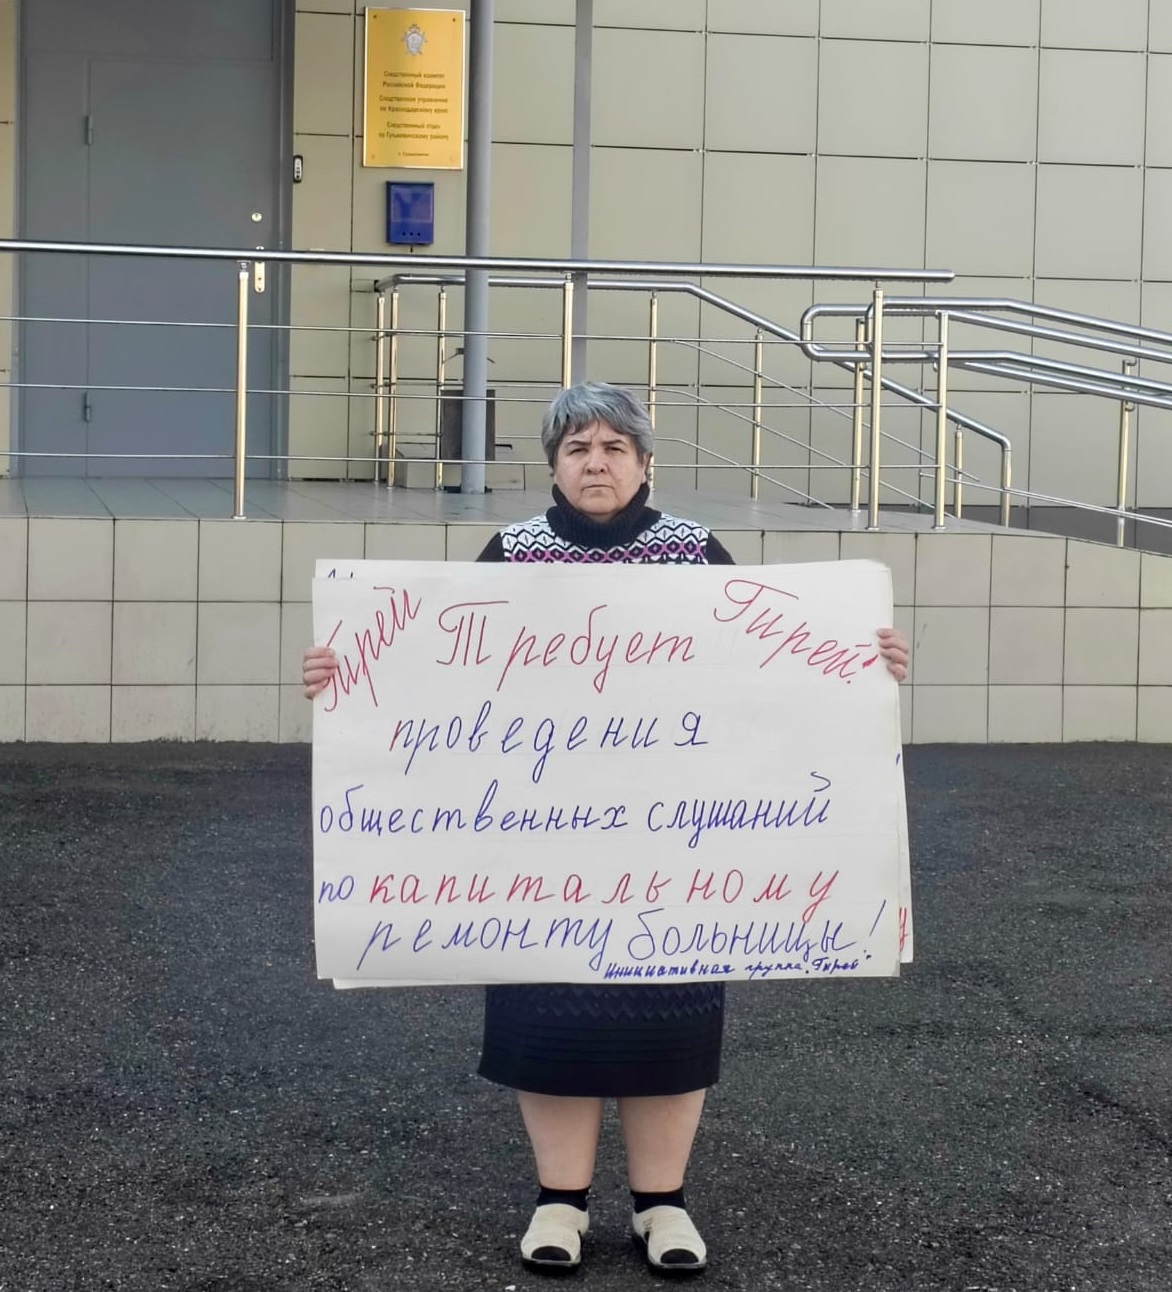 Следственный комитет
Российской Федерации
Следственное управление
по Краснодарскому краю
Следственный отдел
по Гулькевичскому району
г. Гулькевичи
Гирей Требует Гирей!
проведения
общественных слушаний
по капитальному
ремонту больницы!
Инициативная группа "Гирей"